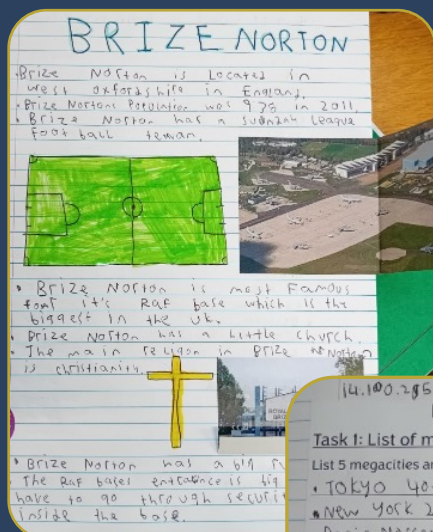 BRIZE NORTON
• Brize Norton is Located in
west oxfordshire in England.
• Brize Nortons Population was 938 in 2011.
• Brize Norton has a sunday League
foot ball teman.
• Brize Norton is most Famous
for it's RAF base which is the
biggest in the UK.
• Brize Norton has a little church.
• The main religon in Brize Norton
is christianity.
ROYAL
BRI
• Brize Norton has a big
• The RAF bases entrance is big
have to go through securit
inside the base.
14.100.295
Task 1: List of m
List 5 megacities an
• TOKYO 40
• New York 2